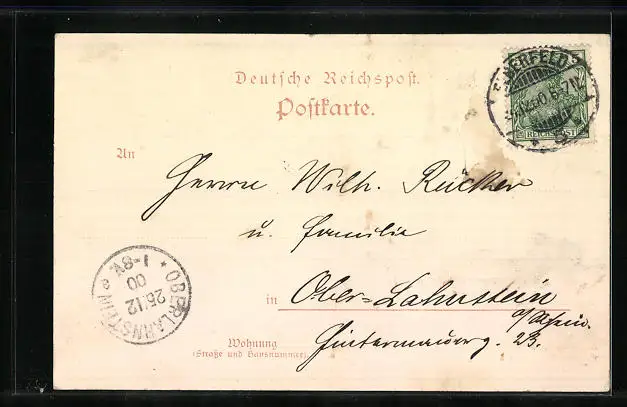 Deutsche Reichspost.
Postkarte.
ELBERFELD
.12.00.6-7N.
REICHSPOST
An
Herrn Wilh. Rücker
u. Familie
in Ober-Lahnstein
a/Rhein.
Wohnung
(Straße und Hausnummer)
Hintermauerg. 23.
OBERLAHNSTEIN
26.12
00
1-8V.